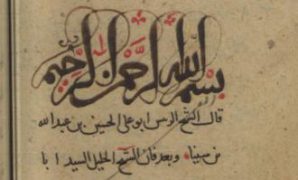 بسم الله الرحمن الرحيم
قال الشيخ الرئيس ابو على الحسين بن عبد الله
بن سينا وبعد فان الشيخ الجليل السيد ابا